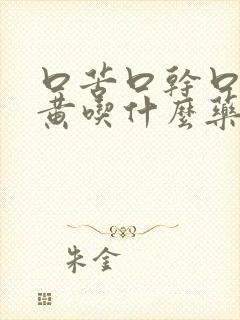 口苦口幹口
黄喫什麼藥
朱金